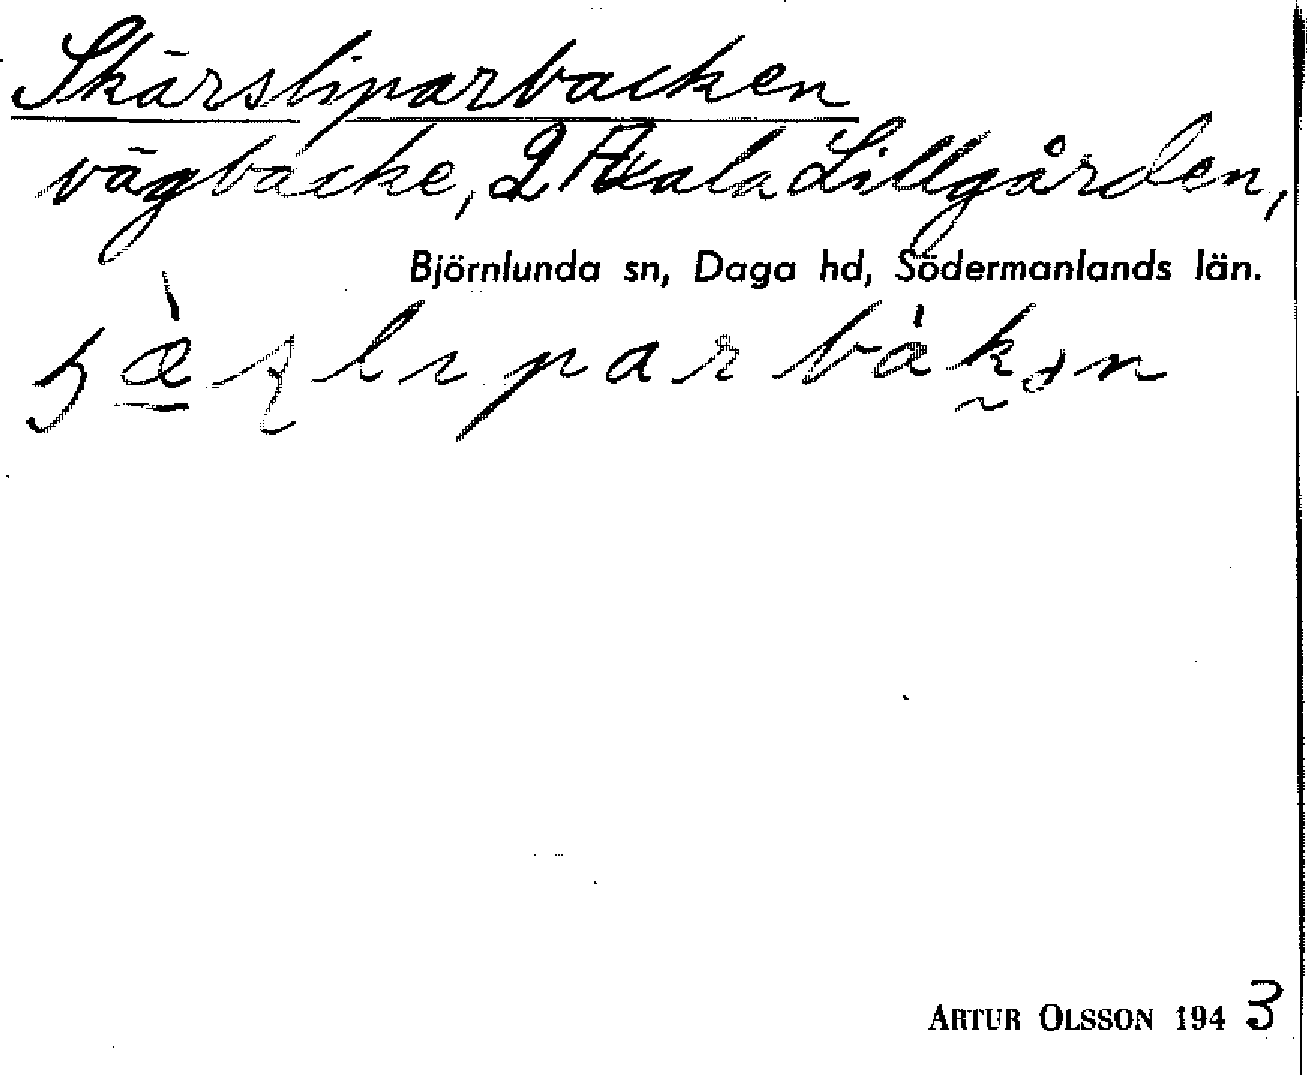 Skärsliparbacken
vägbacke, 2 Axala Lillgården,
Björnlunda sn, Daga hd, Södermanlands län.
ARTUR OLSSON 1943